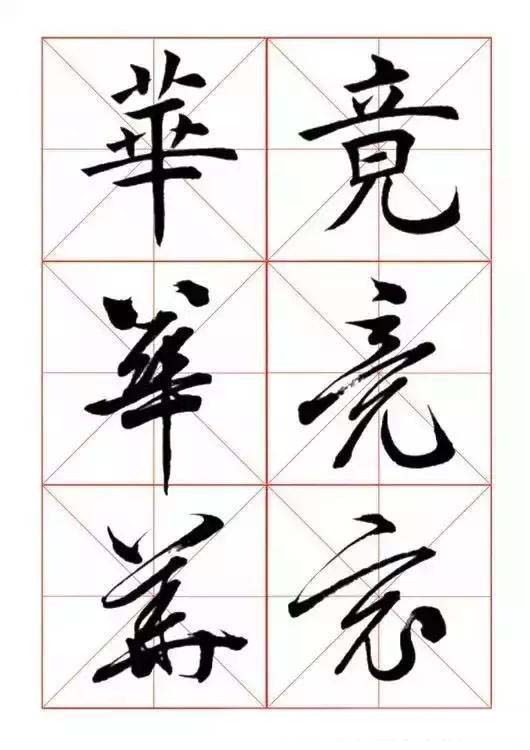 竟竟竟
華華華